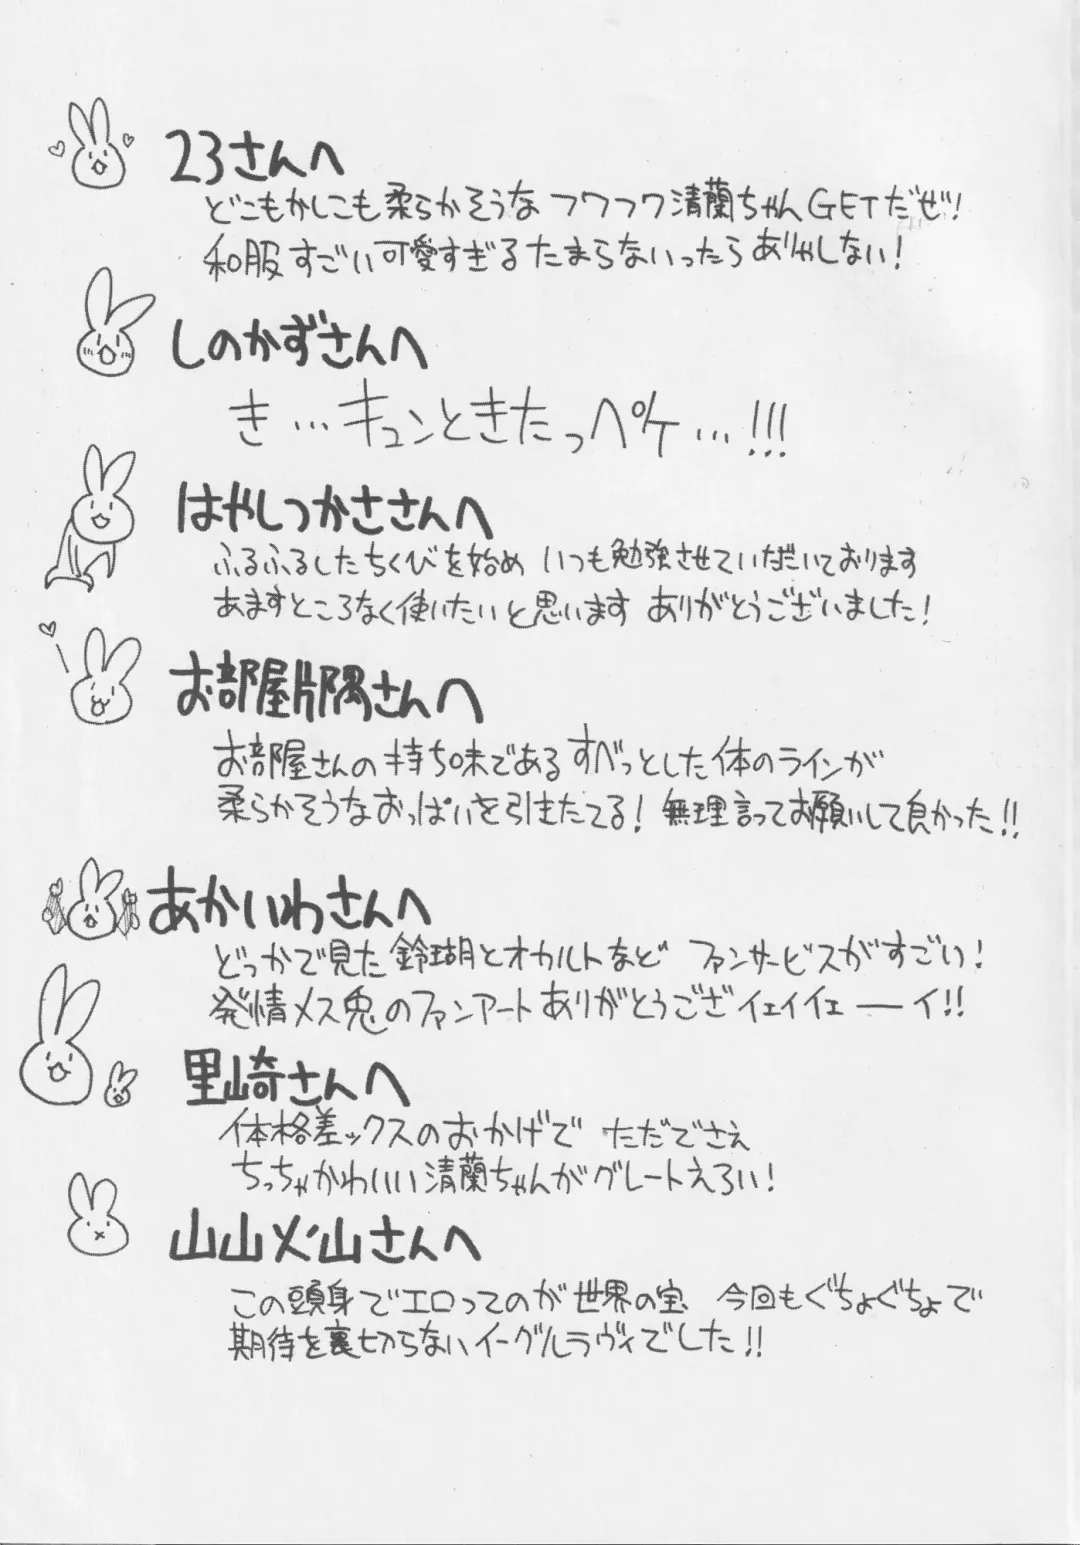 23さんへ
どこもかしこも柔らかそうな フワフワ清蘭ちゃんGETだぜ!
和服すごい可愛すぎるたまらないったらありゃしない!
しのかずさんへ
き…キュンときたっペケ…!!!
はやしつかささんへ
ふるふるしたちくびを始め いつも勉強させていただいております
あますところなく使いたいと思います ありがとうございました!
お部屋片隅さんへ
お部屋さんの持ち味である すべっとした体のラインが
柔らかそうなおっぱいを引きたてる! 無理言ってお願いして良かった!!
あかいわさんへ
どっかで見た鈴瑚とオカルトなど ファンサービスがすごい!
発情メス兎のファンアートありがとうござイェイイェーイ!!
里崎さんへ
体格差ックスのおかげで ただでさえ
ちっちゃかわいい清蘭ちゃんがグレートえろい!
山山火山さんへ
この頭身でエロってのが世界の宝 今回もぐちょぐちょで
期待を裏切らないイーグルラヴィでした!!